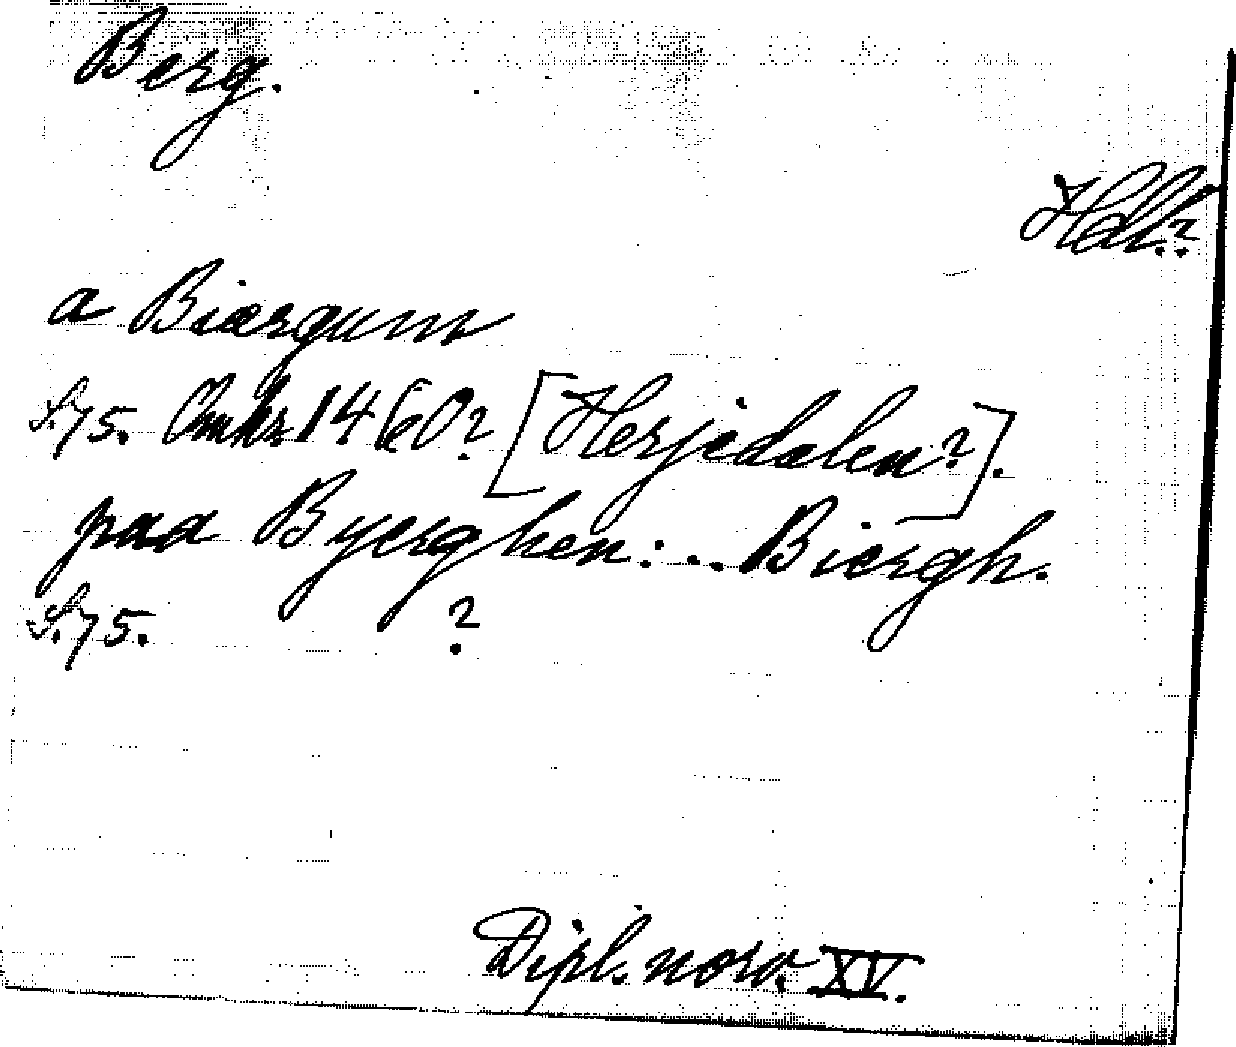 Berg.
Hdl.?
a Biærgum
S. 75. Omkr 1460? [Herjedalen?].
paa Byerghen: .. Biergh.
S. 75. ?
Dipl. norv. XV.